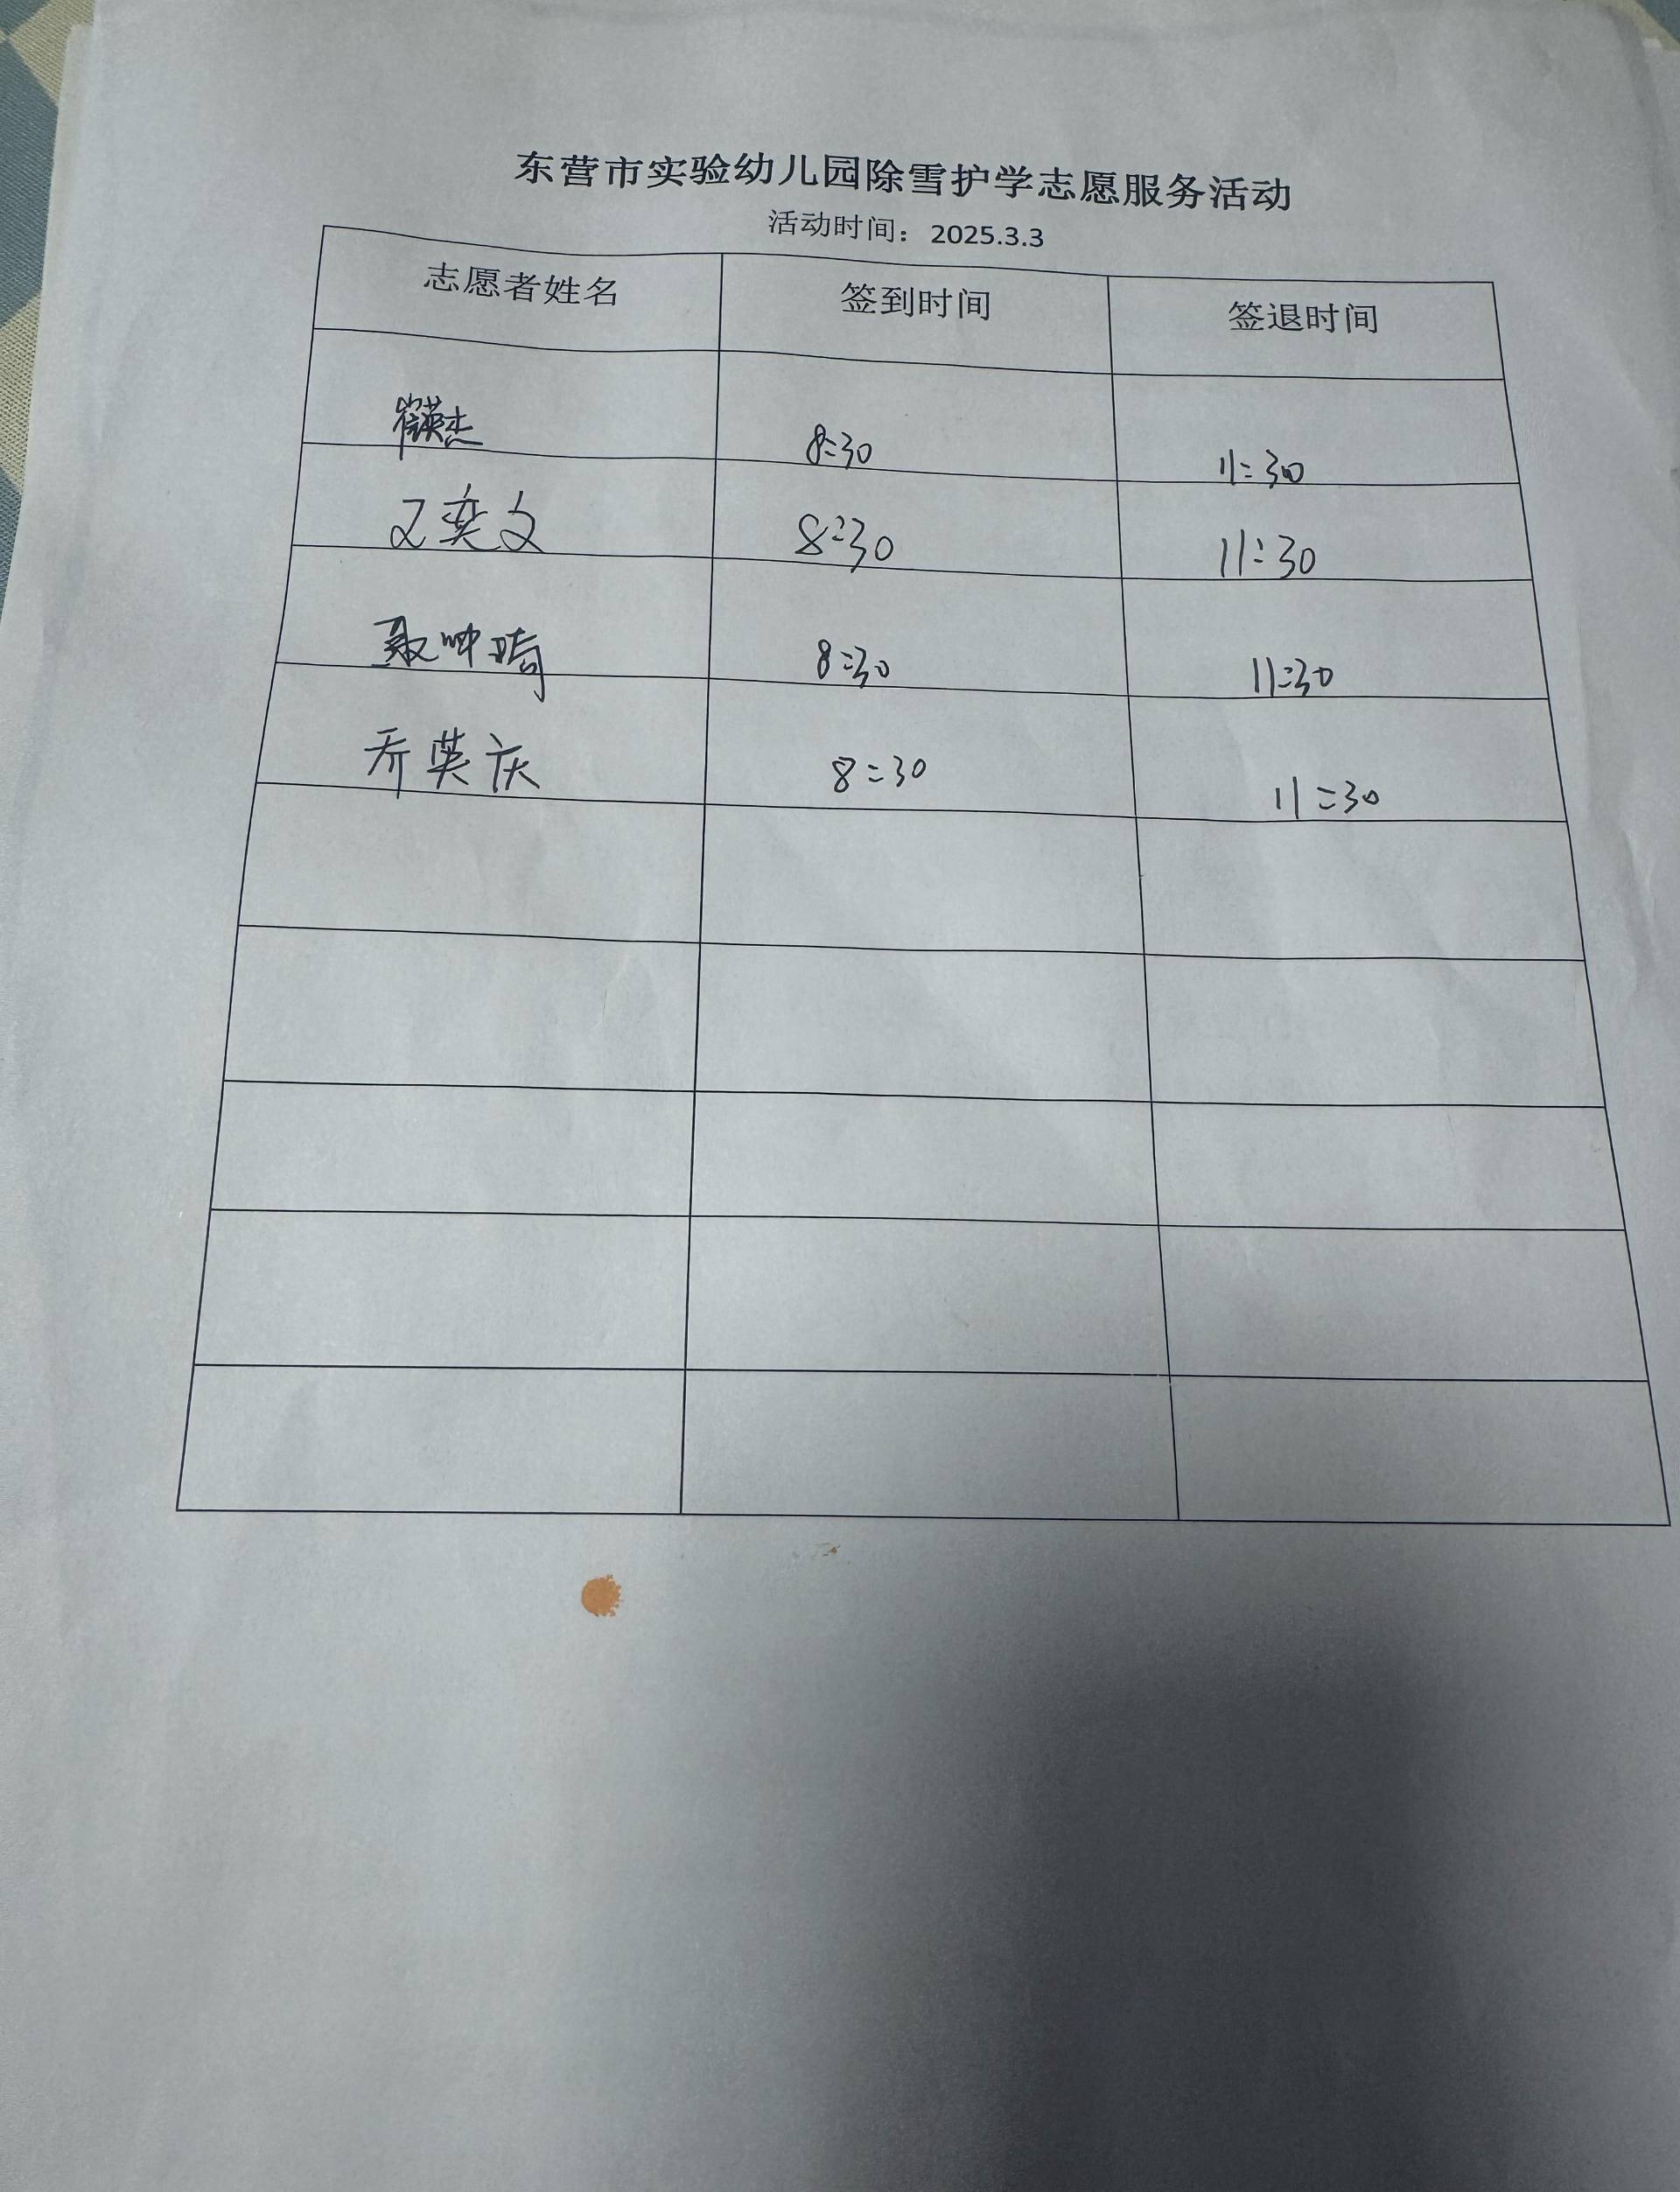 东营市实验幼儿园除雪护学志愿服务活动
活动时间：2025.3.3
志愿者姓名 签到时间 签退时间
崔英杰 8:30 11:30
奕文 8:30 11:30
聂 8:30 11:30
乔英庆 8:30 11:30